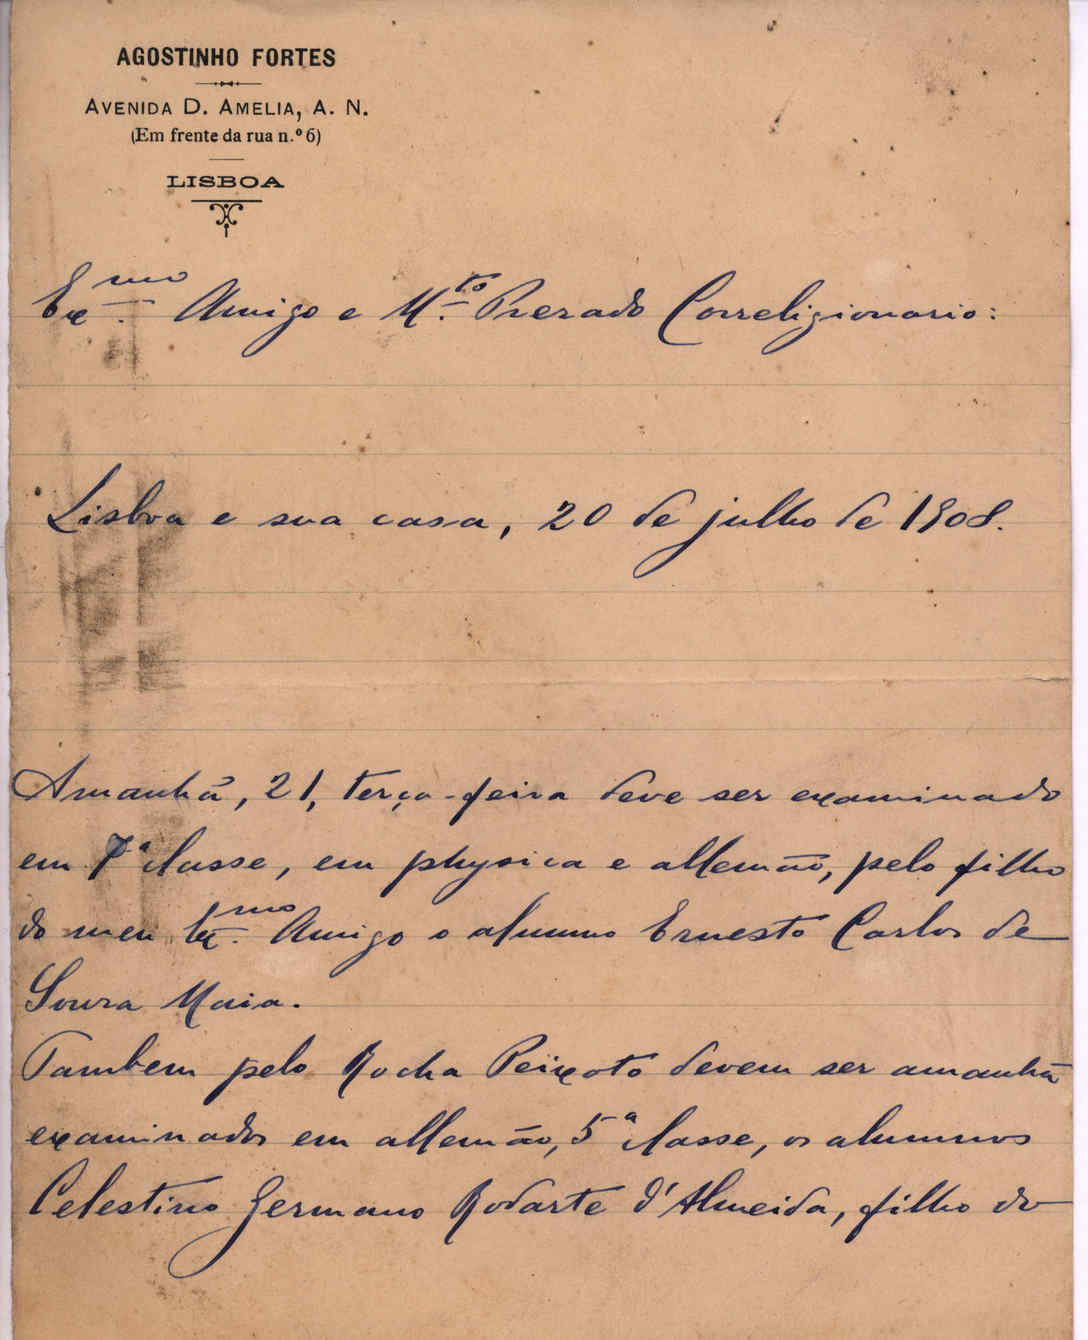 AGOSTINHO FORTES
AVENIDA D. AMELIA, A. N.
(Em frente da rua n.º 6)
LISBOA
Ex.mo Amigo e M.to Prezado Correligionario:
Lisboa e sua casa, 20 de julho de 1908.
Amanhã, 21, terça-feira deve ser examinado
em 7ª classe, em physica e allemão, pelo filho
do meu Ex.mo Amigo o alumno Ernesto Carlos de
Souza Maia.
Tambem pelo Rocha Peixoto devem ser amanhã
examinados em allemão, 5ª classe, os alumnos
Celestino Germano Rodarte d'Almeida, filho do